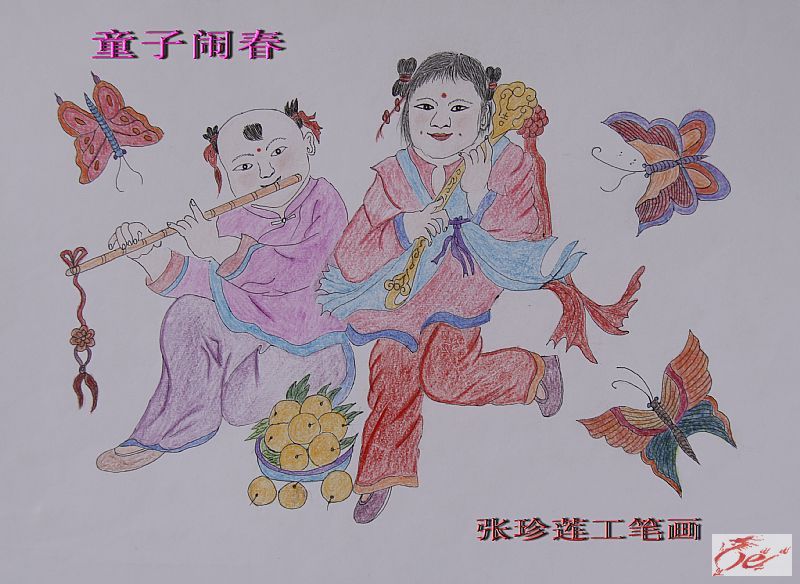 童子闹春
张珍莲工笔画